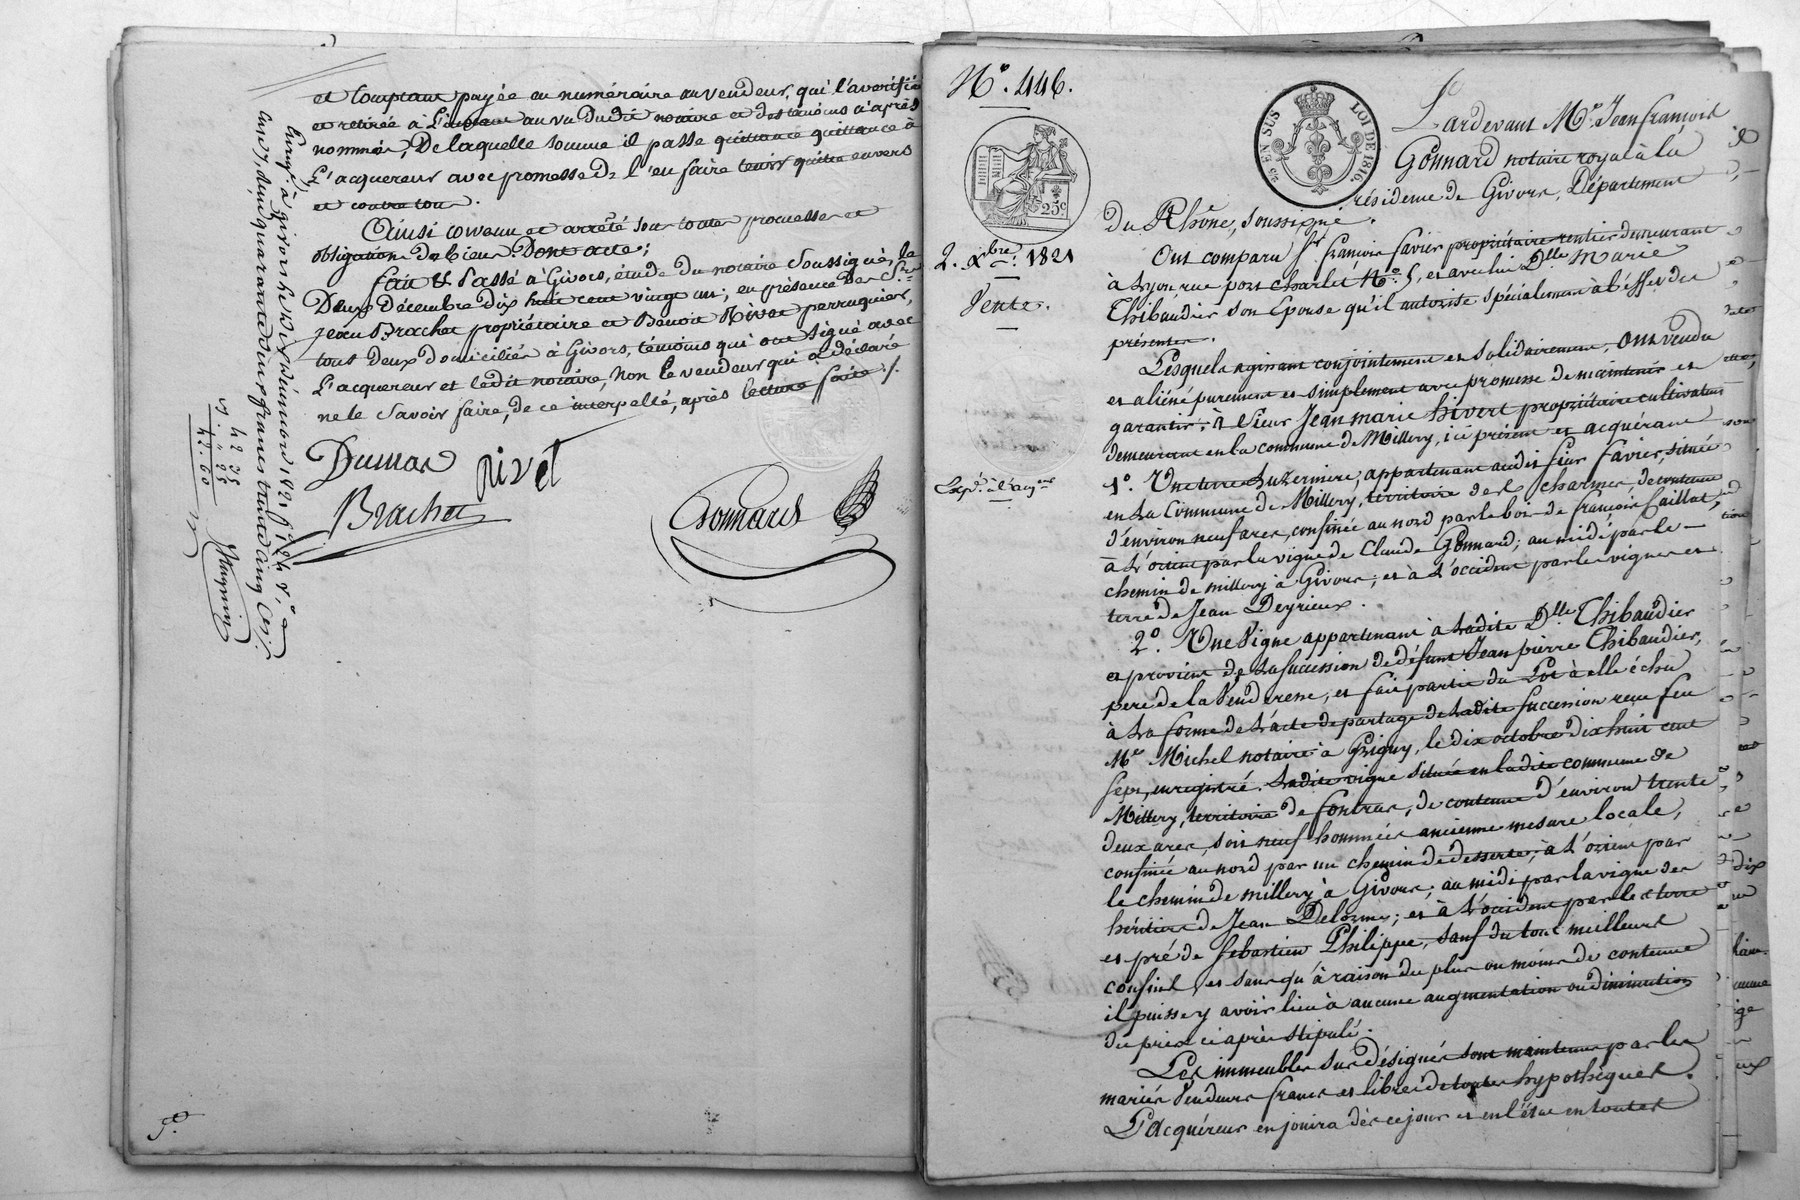 et comptant payée en numéraire au vendeur, qui l'a vérifiée
et retirée à l'instant au vu dudit notaire et des témoins ci après
nommés, De laquelle somme il passe quittance à
L'acquereur avec promesse De l'en faire tenir quitte envers
et contre tous.
Ainsi convenu et arrêté sous toutes promesses et
obligations de bien. Dont acte;
fait & Passé à Givors, étude du notaire Soussigné, le
Deux Décembre Dix huit cent vingt un; en présence de Srs
jean Brachet propriétaire et Benoit Rivat perruquier,
tous deux domiciliés à Givors, témoins qui ont signé avec
L'acquereur et ledit notaire, Non le vendeur qui a déclaré
ne le Savoir faire, de ce interpellé, après lecture faite ./.
Dumas rivat
Brachet
Gonnard
Enregé. à givors le
1821, fo. 104 vo.
quarante deux francs trente cinq ces.
42 35
42. 60
N°. 446.
25 c
EN SUS
LOI DE 1816.
2. Xbre. 1821
Vente.
Expé. à l'acqer
Pardevant Me. Jean françois
Gonnard notaire royal à la
résidence de Givors, Département
du Rhône, soussigné.
Ont comparu Sr. françois favier propriétaire rentier demeurant
à Lyon rue port charlet N°. 5, et avec lui Dlle Marie
Thibaudier son Epouse qu'il autorise spécialement à l'effet des
présentes.
Lesquels agissant conjointement et solidairement, ont vendu
et aliéné purement et simplement avec promesse de maintenir et
garantir, à Sieur Jean marie hivert propriétaire cultivateur
demeurant en la commune de Millery, ici présent et acquérant
1°. Une terre Luzerniere, appartenant audit sieur favier, située
en La Commune de Millery, territoire des charmes, de contenue
d'environ neuf ares, confinée au nord par le bois de françois Gaillat,
à L'orient par la vigne de Claude Gonnard; au midi par le
chemin de millery à Givors; et à L'occident par les vignes et
terre de Jean Deyrieux.
2°. Une Vigne appartenant à Ladite Dlle Thibaudier
et provient de La succession de défunt Jean pierre Thibaudier,
pere de la Venderesse, et fait partie du Lot à elle échu
à La forme de L'acte de partage de Ladite succession reçu feu
Me. Michel notaire à Grigny, le dix octobre dix huit cent
sept, enregistré. Ladite vigne située en ladite commune de
Millery, territoire de fontras, de contenue d'environ trente
deux ares, soit neuf hommées ancienne mesure locale,
confinée au nord par un chemin de desserte; à L'orient par
le chemin de millery à Givors; au midi par la vigne des
héritiers de Jean Delorme; et à L'occident par les terre
et pré de sebastien Philippe, sauf du tout meilleurs
confins, et sans qu'à raison du plus ou moins de contenue
il puisse y avoir lieu à aucune augmentation ou diminution
du prix ci après stipulé.
Les immeubles sus désignés sont maintenus par les
mariés Vendeurs francs et libres de toutes hypothèques.
L'acquéreur en jouira dès ce jour et en l'état en toutes